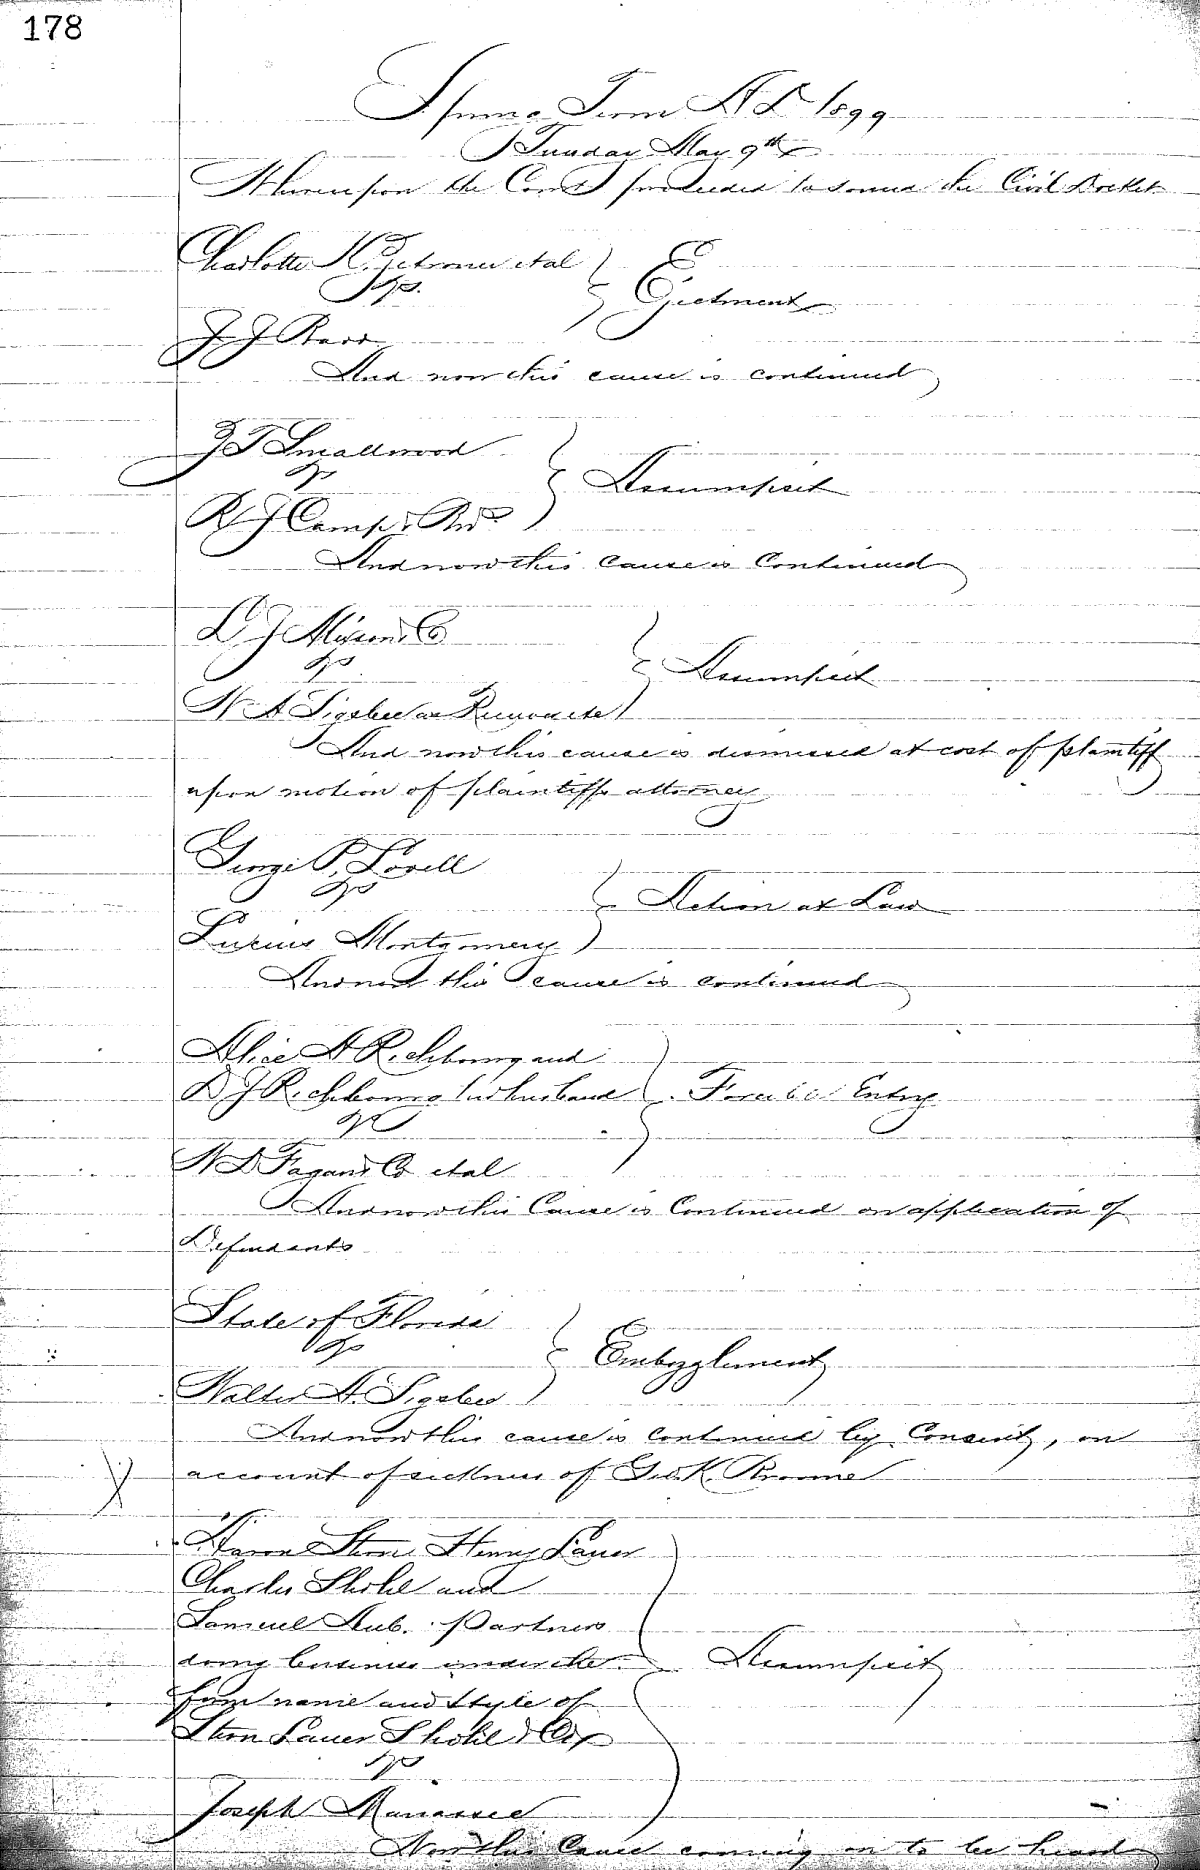 178
Spring Term A D 1899
Tuesday May 9th
Whereupon the Court proceeded to sound the Civil Docket
Charlotte et al
vs.
Ejectment
J J
And now this cause is continued
J T Smallwood
vs
Assumpsit
R J Camp & Bro
And now this cause is Continued
L J Mixson & Co
vs
Assumpsit
W A Sigsbee as
And now this cause is dismissed at cost of plaintiff
upon motion of plaintiffs attorney
George P. Lovell
vs
Action at Law
Lucius Montgomery
And now this cause is continued
Alice A Richbourg and
D J Richbourg her husband
Forcible Entry
vs
W D Fagan & Co et al
And now this Cause is Continued on application of
Defendants
State of Florida
vs
Embezzlement
Walter A. Sigsbee
And now this cause is continued by Consent, on
account of sickness of Broome
Stern Henry Lauer
Charles Shohl and
Samuel Aub. Partners
doing business under the
firm name and style of
Stern Lauer Shohl & Co
Assumpsit
vs
Joseph Manassee
Now this Cause coming on to be heard